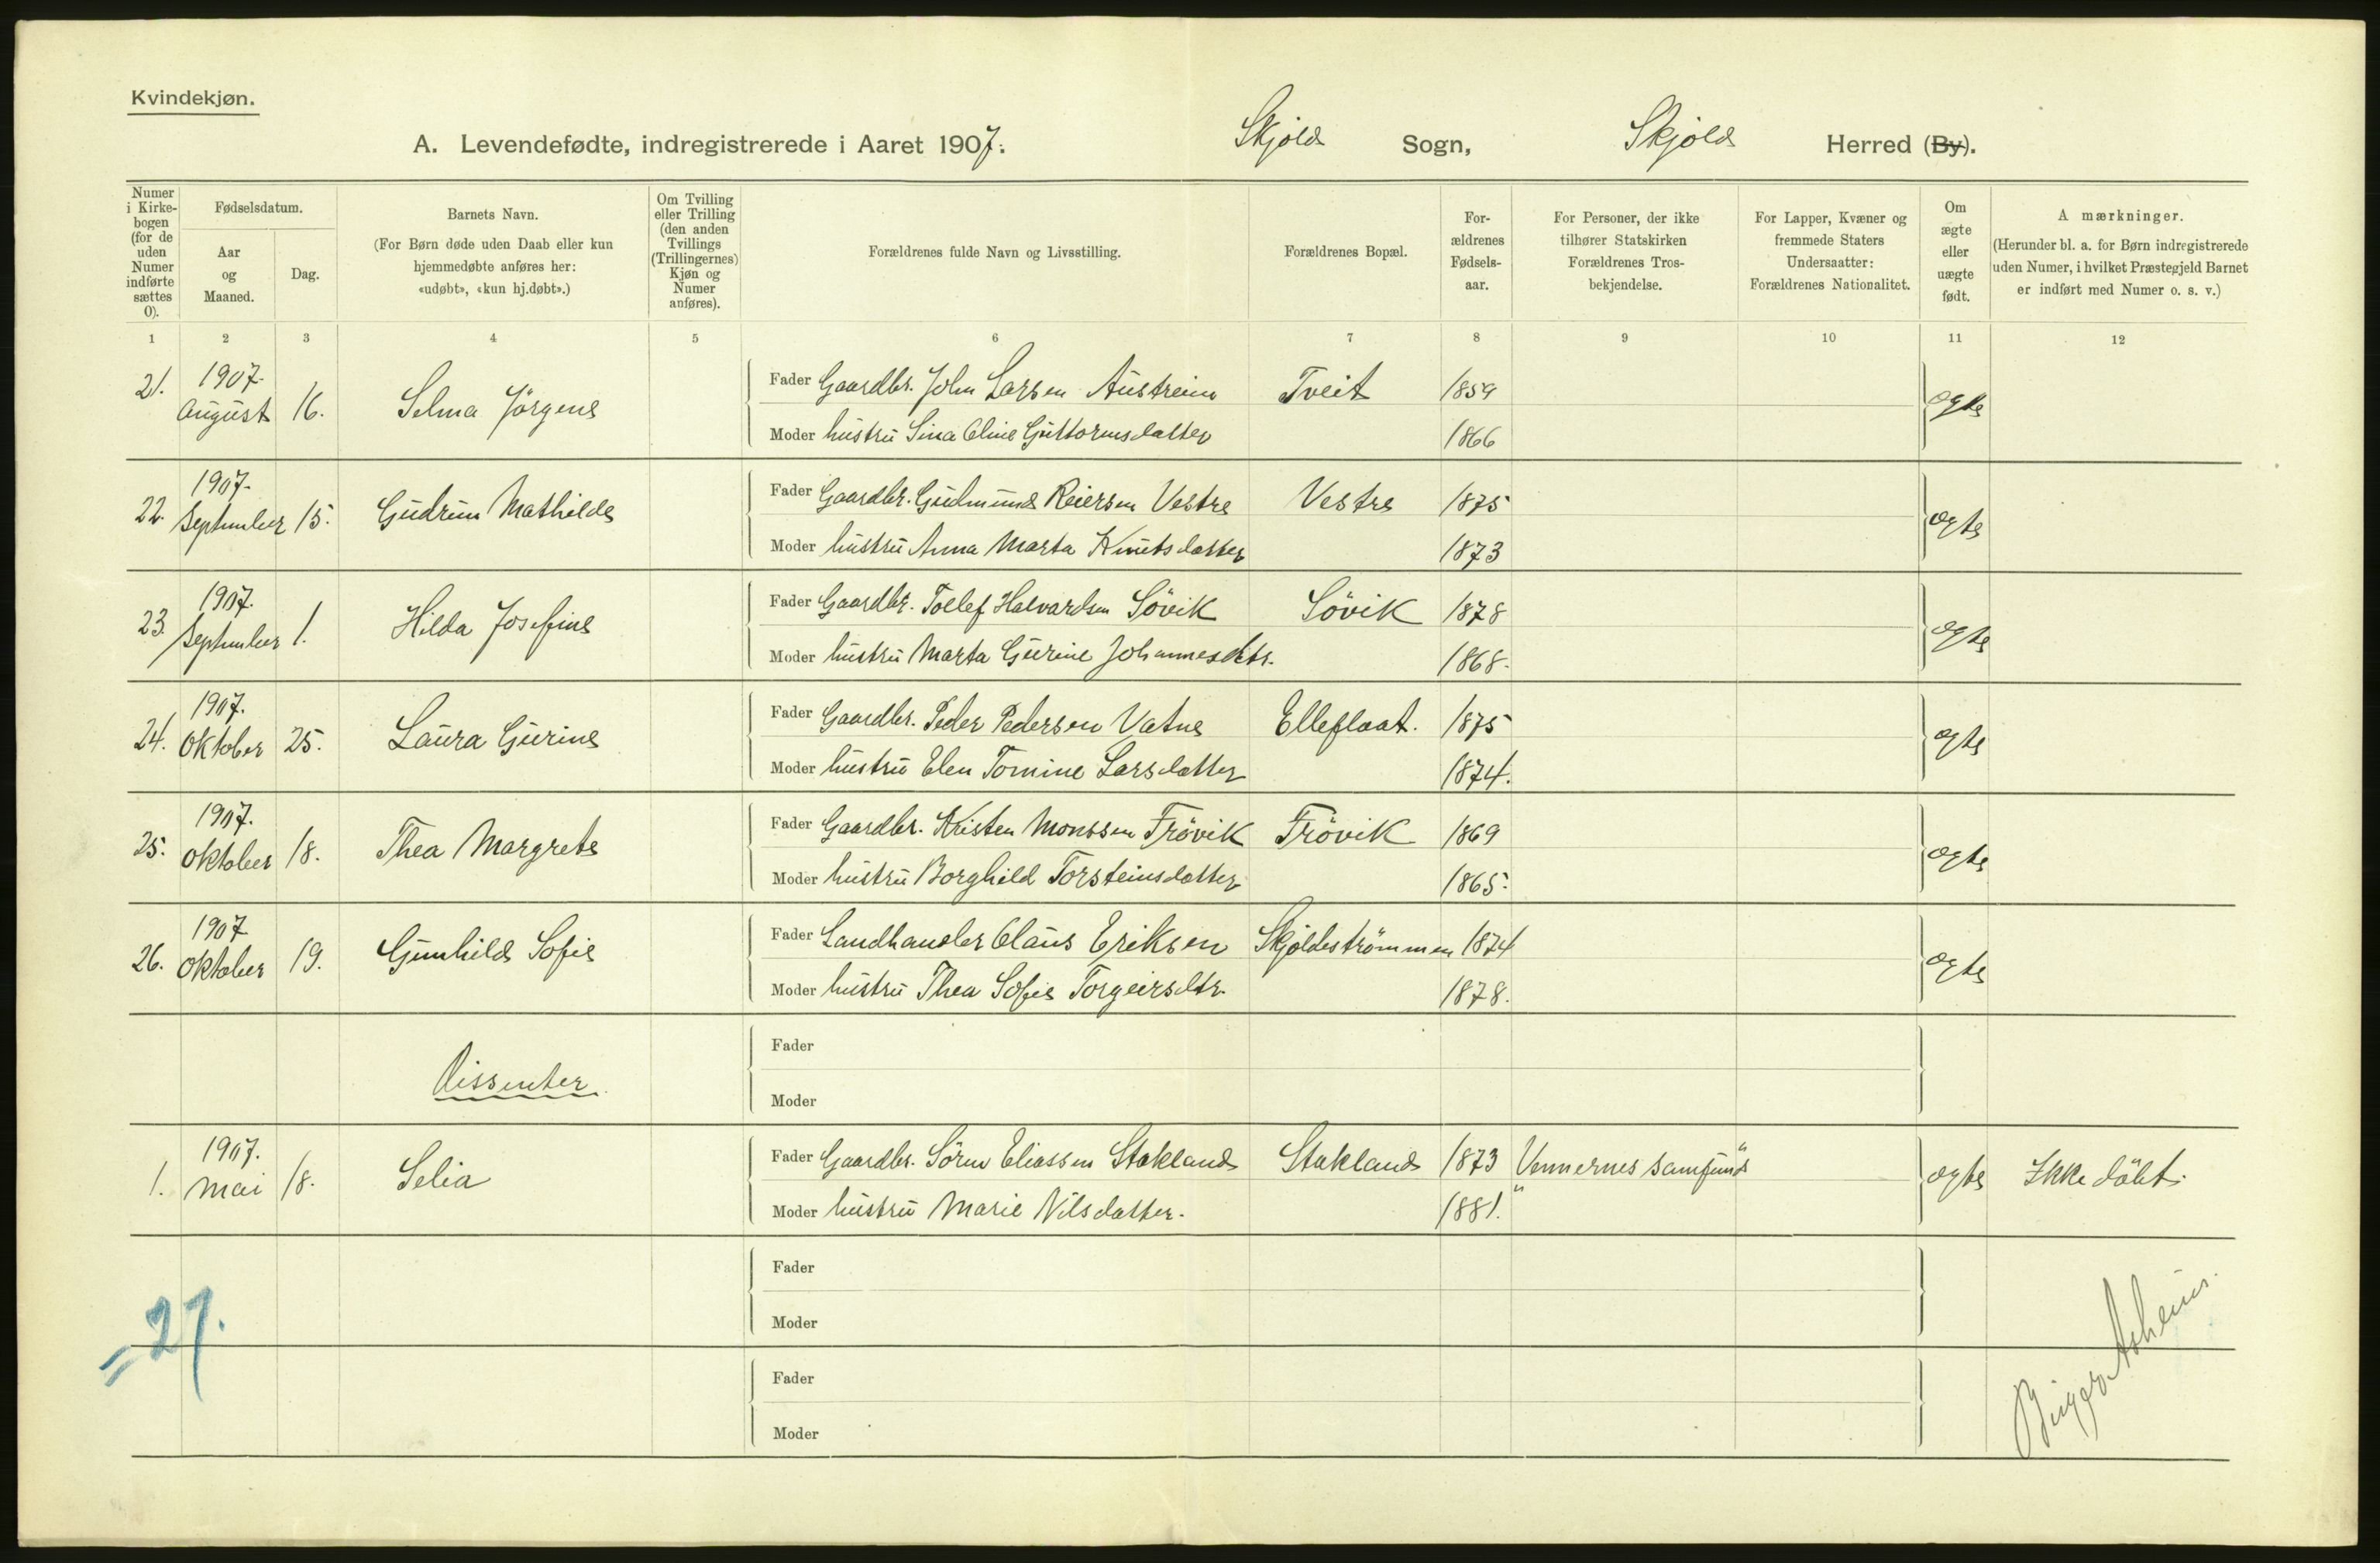 Kvindekjøn.
A. Levendefødte, indregistrerede i Aaret 1907. Skjold Sogn, Skjold Herred (By).
Numer i Kirkebogen (for de uden Numer indførte sættes 0).
Fødselsdatum.
Aar og Maaned.
Dag.
Barnets Navn.
(For Børn døde uden Daab eller kun hjemmedøbte anføres her: «udøbt», «kun hj.døbt».)
Om Tvilling eller Trilling (den anden Tvillings (Trillingernes) Kjøn og Numer anføres).
Forældrenes fulde Navn og Livsstilling.
Forældrenes Bopæl.
Forældrenes Fødselsaar.
For Personer, der ikke tilhører Statskirken Forældrenes Trosbekjendelse.
For Lapper, Kvæner og fremmede Staters Undersaatter: Forældrenes Nationalitet.
Om ægte eller uægte født.
A mærkninger.
(Herunder bl. a. for Børn indregistrerede uden Numer, i hvilket Præstegjeld Barnet er indført med Numer o. s. v.)
1 2 3 4 5 6 7 8 9 10 11 12
21. 1907. August 16. Selma Jørgine Fader Gaardbr. John Larsen Austreim Tveit 1859 ægte
Moder hustru Sina Oline Guttormsdatter 1866
22. 1907. September 15. Gudrun Mathilde Fader Gaardbr. Gudmund Reiersen Vestre Vestre 1875 ægte
Moder hustru Anna Marta Knutsdatter 1873
23. 1907. September 1. Hilda Josefine Fader Gaardbr. Tollef Halvardsen Søvik Søvik 1878 ægte
Moder hustru Marta Gurine Johannesdtr. 1868.
24. 1907. Oktober 25. Laura Gurine Fader Gaardbr. Peder Pedersen Vatne Elleflaat. 1875 ægte
Moder hustru Elen Tomine Larsdatter 1874.
25. 1907. Oktober 18. Thea Margrete Fader Gaardbr. Kristen Monssen Frøvik Frøvik 1869 ægte
Moder hustru Borghild Torsteinsdatter 1865.
26. 1907 Oktober 19. Gunhild Sofie Fader Landhandler Claus Eriksen Skjoldestrømmen 1874 ægte
Moder hustru Thea Sofie Torgeirsdtr. 1878.
Dissenter. Fader
Moder
1. 1907. Mai 18. Selia Fader Gaardbr. Søren Eliassen Stakland Stakland 1873 Vennernes samfund ægte Ikke døbt.
Moder hustru Marie Nilsdatter. 1881. " "
Fader
Moder
= 27.
Fader
Moder